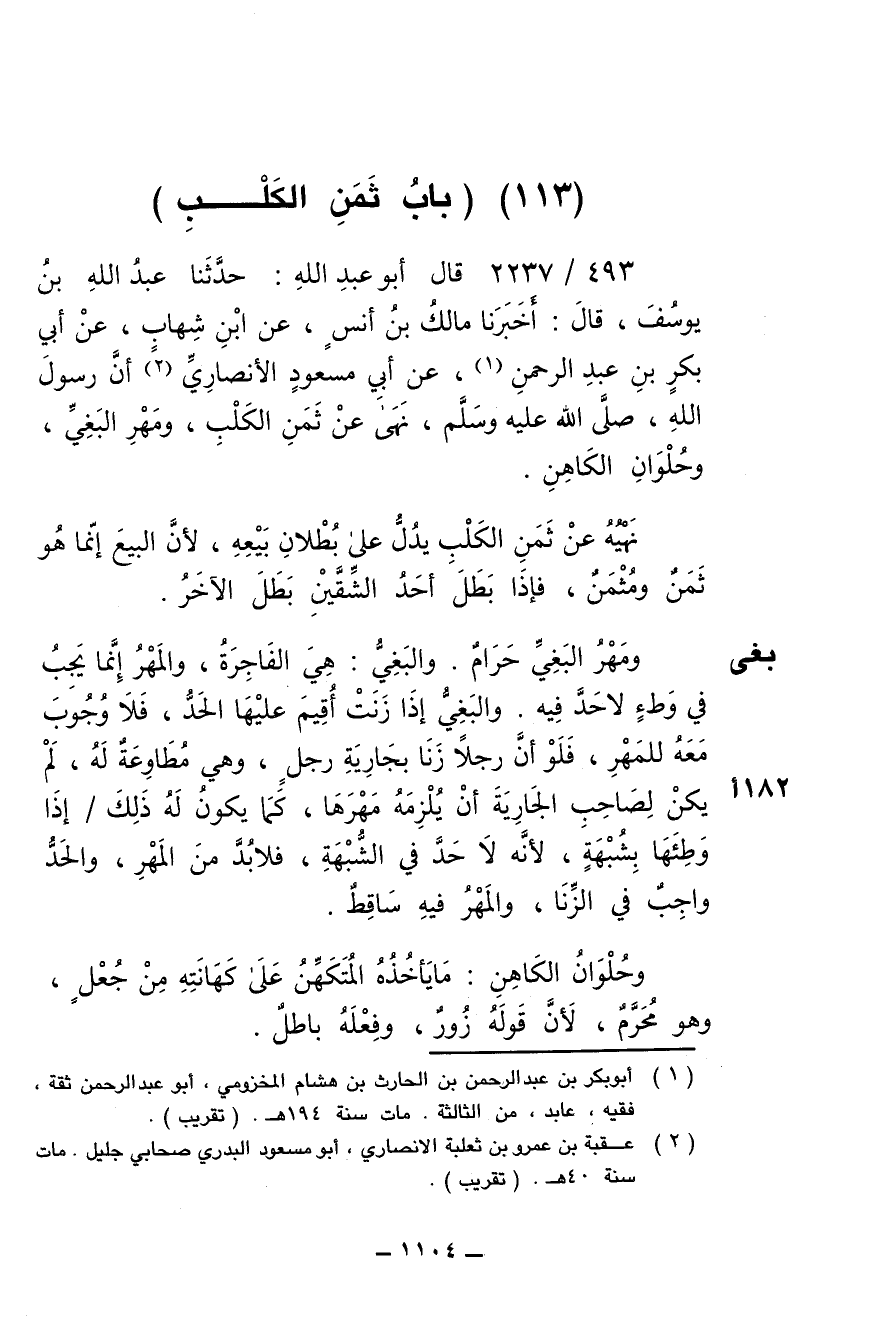 (١١٣) ( بابُ ثَمَنِ الكَلْـــــبِ )
٤٩٣ / ٢٢٣٧ قال أبو عبدِ اللهِ : حدَّثَنا عبدُ اللهِ بنُ
يوسُفَ ، قالَ : أَخَبَرَنا مالكُ بنُ أنسٍ ، عن ابْنِ شِهابٍ ، عنْ أبي
بكرِ بنِ عبدِ الرحمنِ (١) ، عن أبي مسعودٍ الأنصارِيِّ (٢) أنَّ رسولَ
اللهِ ، صلَّى الله عليه وسَلَّم ، نَهَىٰ عنْ ثَمَنِ الكَلْبِ ، ومَهْرِ البَغِيِّ ،
وحُلْوَانِ الكَاهِنِ .
نَهْيُهُ عنْ ثَمَنِ الكَلْبِ يدُلُّ علىٰ بُطْلانِ بَيْعِهِ ، لأنَّ البيعَ إنّما هُو
ثَمَنٌ ومُثْمَنٌ ، فإذَا بَطَلَ أحَدُ الشِّقَّيْنِ بَطَلَ الآخَرُ .
بغى
ومَهْرُ البَغِيِّ حَرَامٌ . والبَغِيُّ : هِيَ الفَاجِرَةُ ، والمَهْرُ إِنَّما يَجِبُ
في وَطءٍ لاحَدَّ فِيه . والبَغِيُّ إذَا زَنَتْ أُقِيمَ عليْهَا الحَدُّ ، فَلَا وُجُوبَ
مَعَهُ للمَهْرِ ، فَلَوْ أنَّ رجلاً زَنَا بجَارِيَةِ رجلٍ ، وهي مُطَاوِعَةٌ لَهُ ، لَمْ
١٨٢أ
يكنْ لِصَاحِبِ الجَارِيَةَ أنْ يُلْزِمَهُ مَهْرَهَا ، كَمَا يكونُ لَهُ ذَلِكَ / إذَا
وَطِئَهَا بِشُبْهَةٍ ، لأنَّه لَا حَدَّ في الشُّبْهَةِ ، فلابُدَّ منَ المَهْرِ ، والحَدُّ
واجِبٌ في الزِّنَا ، والمَهْرُ فيهِ سَاقِطٌ .
وحُلْوَانُ الكَاهِنِ : مَايَأخُذُهُ المُتَكَهِّنُ عَلَىٰ كَهَانَتِهِ مِنْ جُعْلٍ ،
وهو مُحَرَّمٌ ، لَأنَّ قَولَهُ زُورٌ ، وفِعْلَهُ باطلٌ .
(١) أبوبكر بن عبدالرحمن بن الحارث بن هشام المخزومي ، أبو عبدالرحمن ثقة ،
فقيه ، عابد ، من الثالثة . مات سنة ١٩٤هـ . ( تقريب ) .
(٢) عـقبة بن عمرو بن ثعلبة الانصاري ، أبو مسعود البدري صحابي جليل . مات
سنة ٤٠هـ . ( تقريب ) .
ــ ١١٠٤ ــ